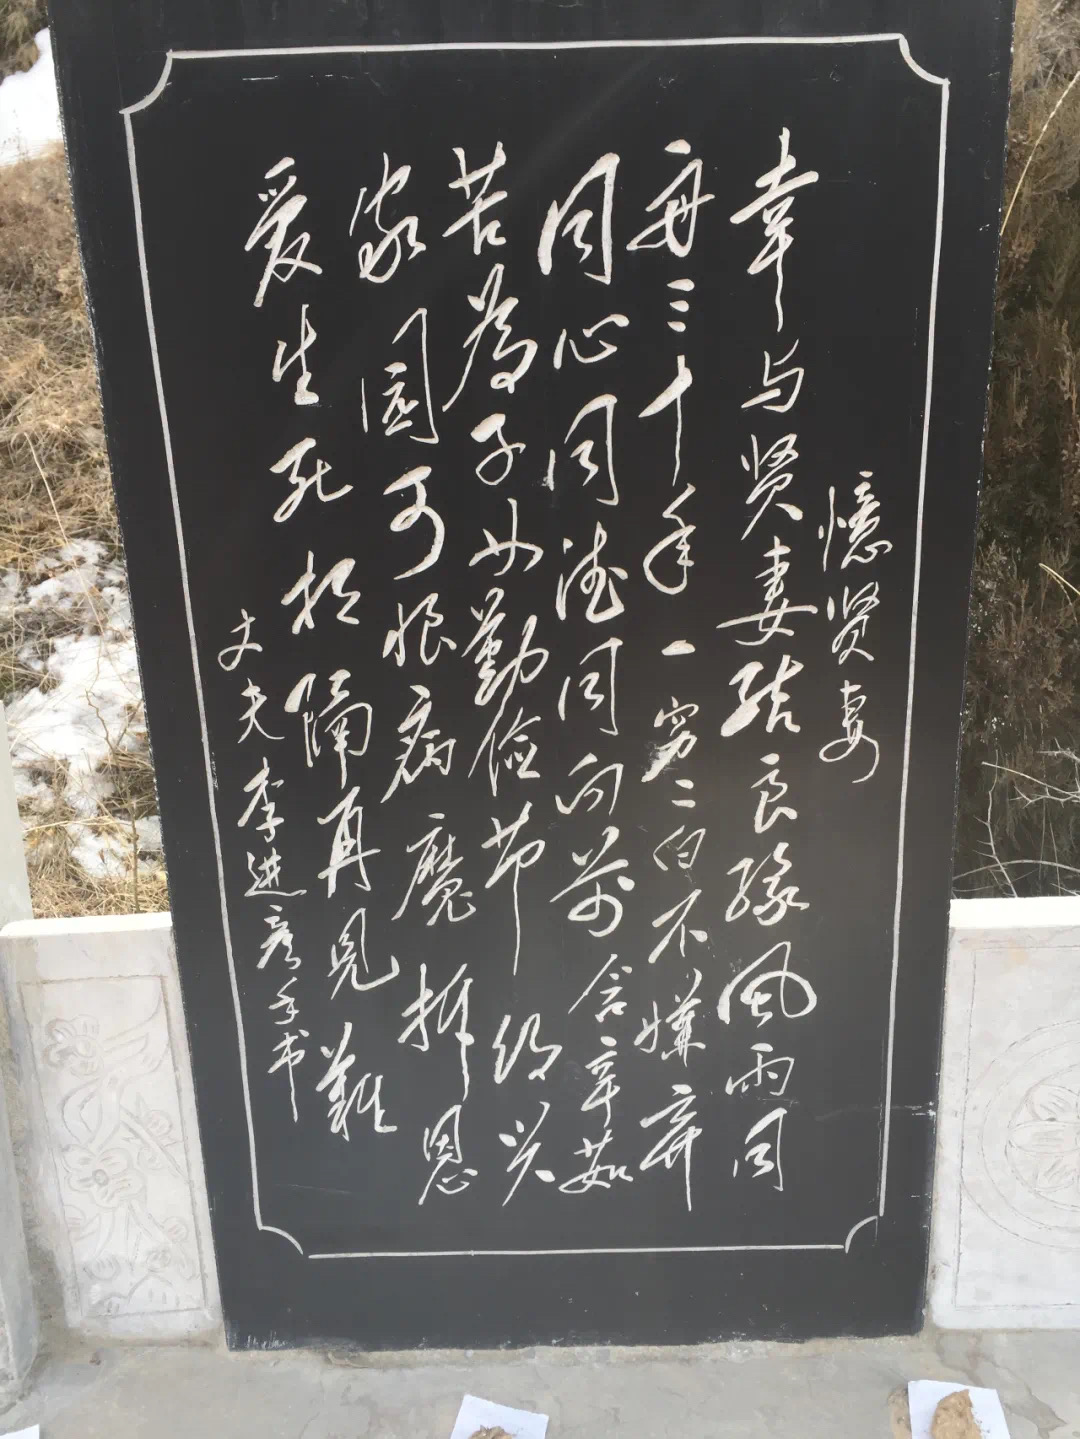 憶贤妻
幸与贤妻结良缘风雨同
舟三十年一穷二白不嫌弃
同心同德同向前含辛茹
苦为子女勤俭节约兴
家园可恨病魔拆恩
爱生死相隔再见難
丈夫李进彦手书